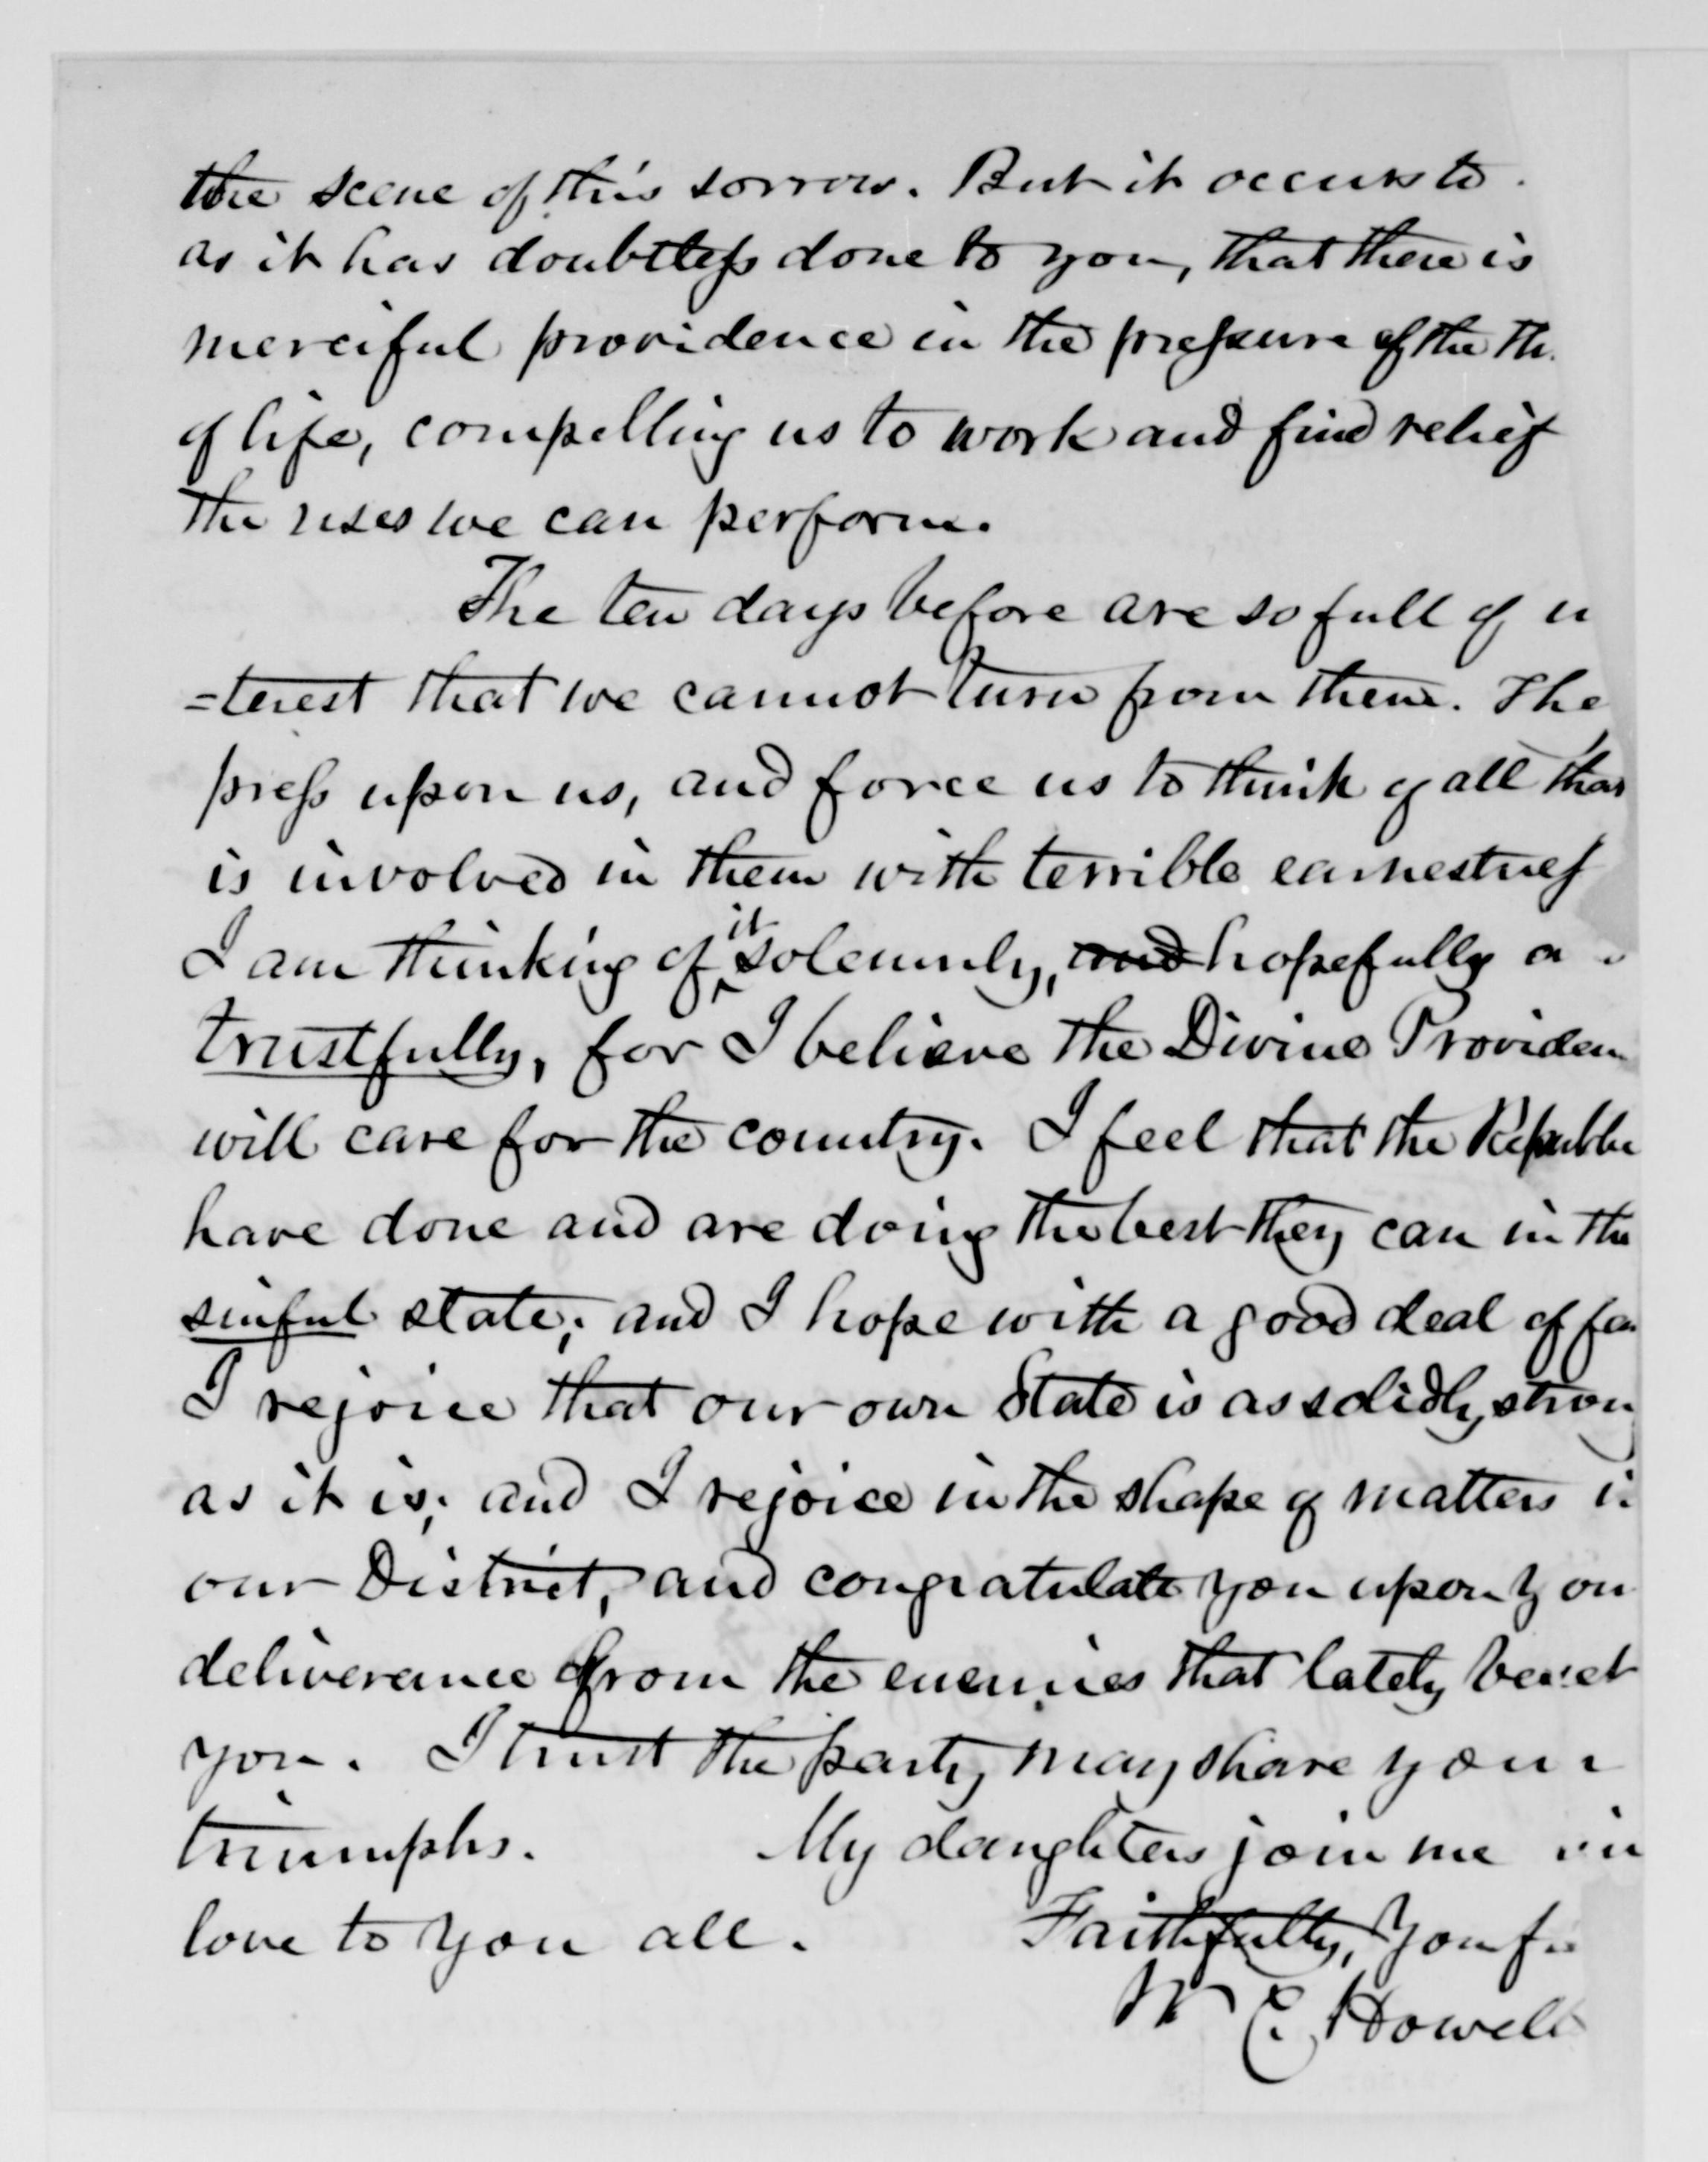 the scene of this sorrow. But it occurs to
as it has doubtless done to you, that there is
merciful providence in the pressure of the th
of life, compelling us to work and find relief
the uses we can perform.
The ten days before are so full of in
=terest that we cannot turn from them. The
press upon us, and force us to think of all that
is involved in them with terrible earnestness
I am thinking of it solemnly, and hopefully a
trustfully, for I believe the Divine Providen
will care for the country. I feel that the Republic
have done and are doing the best they can in the
sinful state; and I hope with a good deal of fa
I rejoice that our own State is as solidly strong
as it is; and I rejoice in the shape of matters in
our District, and congratulate you upon you
deliverance from the enemies that lately beset
you. I trust the party may share your
triumphs. My daughters join me in
love to you all. Faithfully, Your f
Wm C. Howells